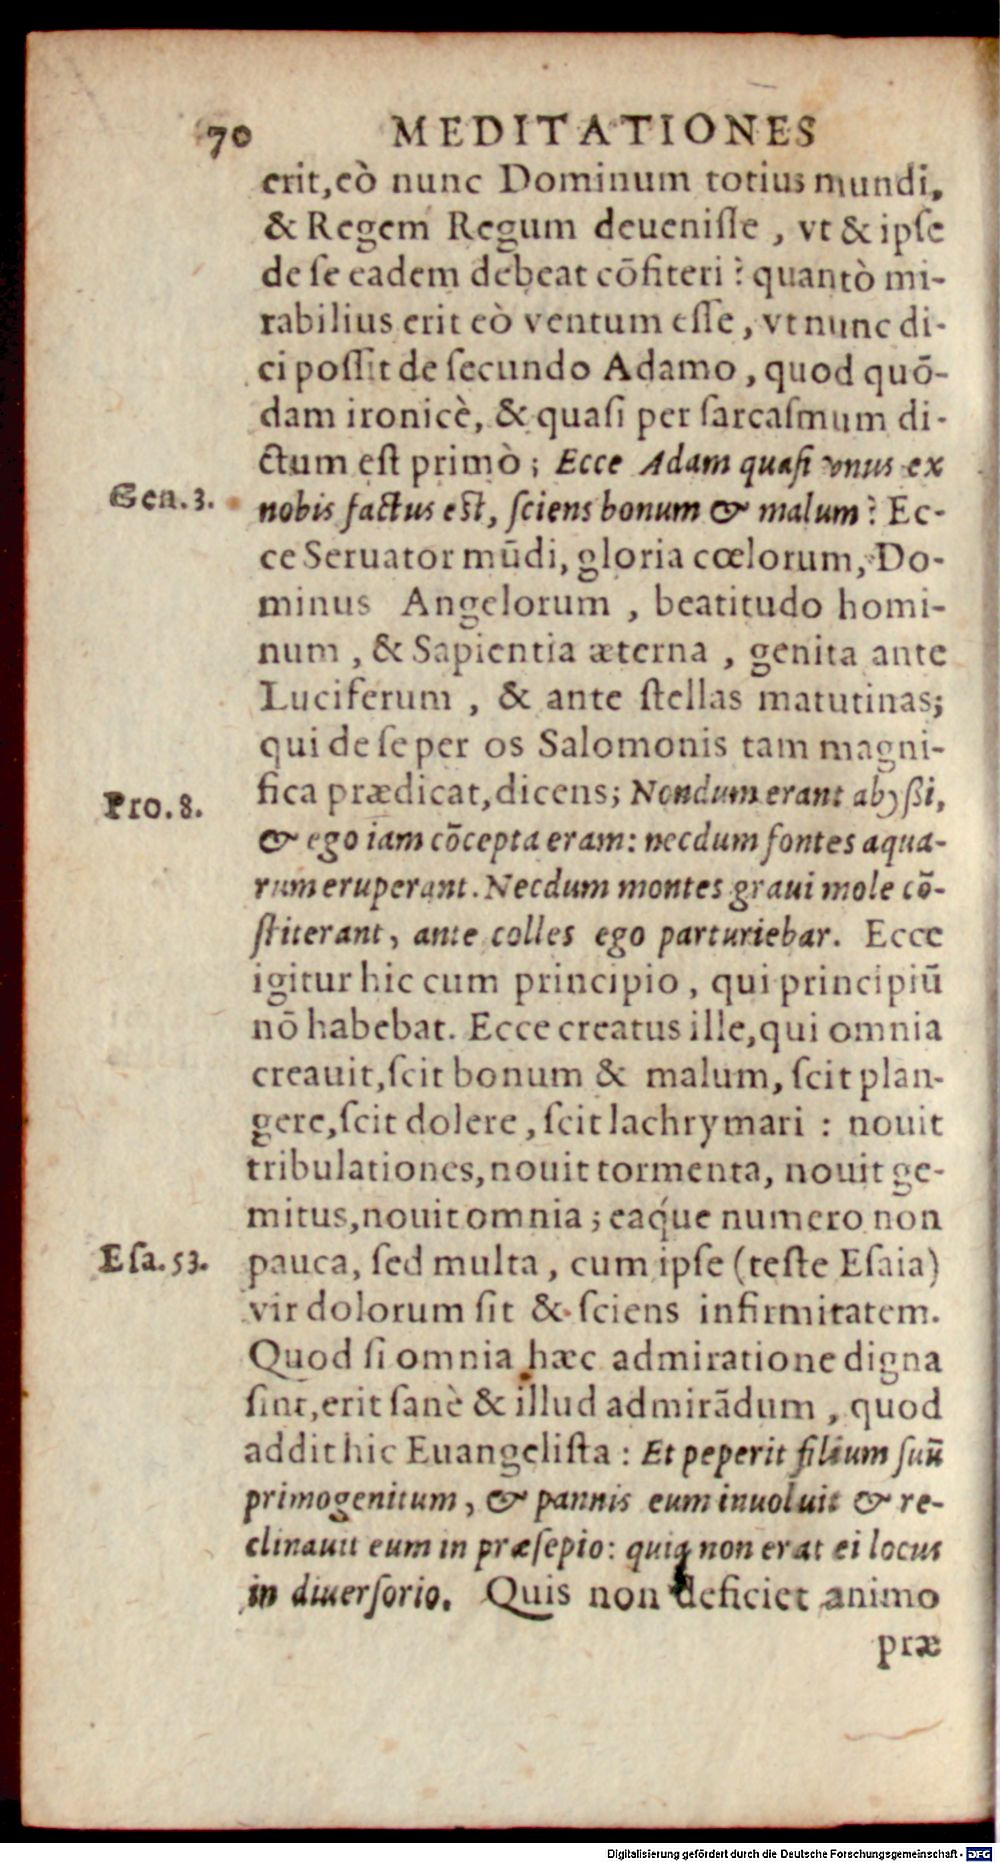 70 MEDITATIONES
erit,eò nunc Dominum totius mundi,
& Regem Regum deueniſſe , vt & ipſe
de ſe eadem debeat cõfiteri ? quantò mi-
rabilius erit eò ventum eſſe , vt nunc di-
ci poſſit de ſecundo Adamo , quod quõ-
dam ironicè, & quaſi per ſarcaſmum di-
ctum eſt primò ; Ecce Adam quaſi vnus ex
Gen. 3.
nobis factus eſt, ſciens bonum & malum ? Ec-
ce Seruator mũdi, gloria cœlorum, Do-
minus Angelorum , beatitudo homi-
num , & Sapientia æterna , genita ante
Luciferum , & ante ſtellas matutinas;
qui de ſe per os Salomonis tam magni-
Pro. 8.
fica prædicat, dicens; Nondum erant abyßi,
& ego iam cõcepta eram: necdum fontes aqua-
rum eruperant. Necdum montes graui mole cõ-
ſtiterant, ante colles ego parturiebar. Ecce
igitur hic cum principio , qui principiũ
nõ habebat. Ecce creatus ille, qui omnia
creauit, ſcit bonum & malum, ſcit plan-
gere, ſcit dolere , ſcit lachrymari : nouit
tribulationes, nouit tormenta, nouit ge-
mitus, nouit omnia ; eaq́ue numero non
Eſa. 53.
pauca, ſed multa , cum ipſe (teſte Eſaia)
vir dolorum ſit & ſciens infirmitatem.
Quod ſi omnia hæc admiratione digna
ſint, erit ſanè & illud admirãdum , quod
addit hic Euangeliſta : Et peperit filium ſuũ
primogenitum , & pannis eum inuoluit & re-
clinauit eum in præſepio: quia non erat ei locus
in diuerſorio. Quis non deficiet animo
præ
Digitalisierung gefördert durch die Deutsche Forschungsgemeinschaft - DFG